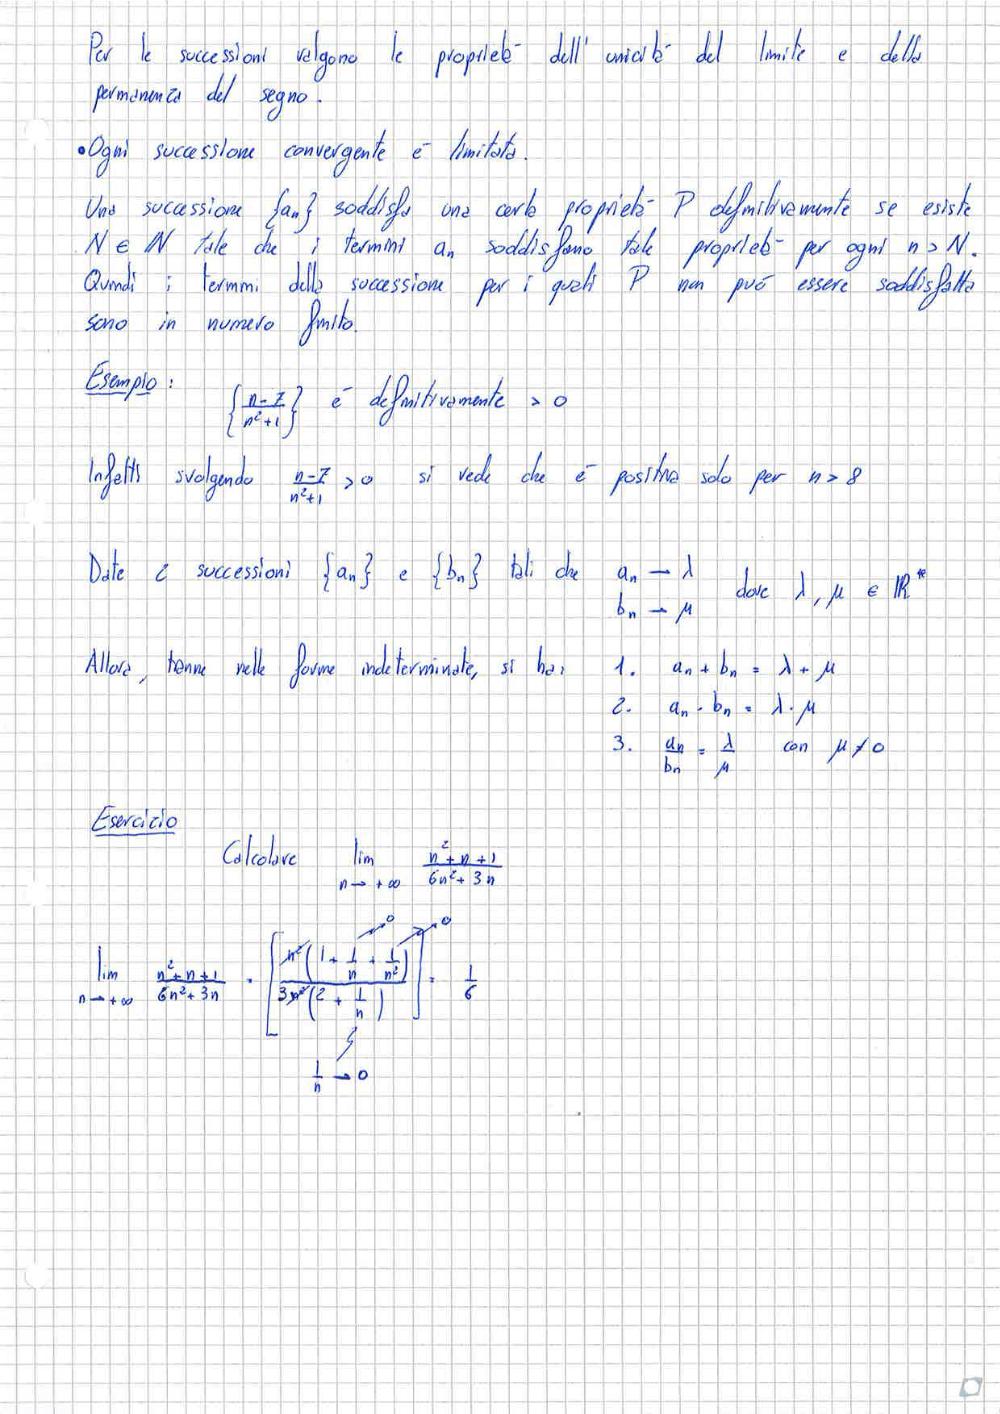 Per le successioni valgono le proprietà dell'unicità del limite e della
permanenza del segno.
• Ogni successione convergente è limitata.
Una successione {aₙ} soddisfa una certa proprietà P definitivamente se esiste
N ∈ ℕ tale che i termini aₙ soddisfano tale proprietà per ogni n > N.
Quindi i termini della successione per i quali P non può essere soddisfatta
sono in numero finito.
Esempio: {(n-7)/(n²+1)} è definitivamente > 0
Infatti svolgendo (n-7)/(n²+1) > 0 si vede che è positiva solo per n > 8
Date 2 successioni {aₙ} e {bₙ} tali che aₙ → λ
bₙ → μ dove λ, μ ∈ ℝ*
Allora, tranne nelle forme indeterminate, si ha: 1. aₙ + bₙ = λ + μ
2. aₙ · bₙ = λ · μ
3. aₙ/bₙ = λ/μ con μ ≠ 0
Esercizio
Calcolare lim n→+∞ (n²+n+1)/(6n²+3n)
lim n→+∞ (n²+n+1)/(6n²+3n) = [n²(1 + 1/n + 1/n²)/3n²(2 + 1/n)] = 1/6
→0 →0
1/n → 0